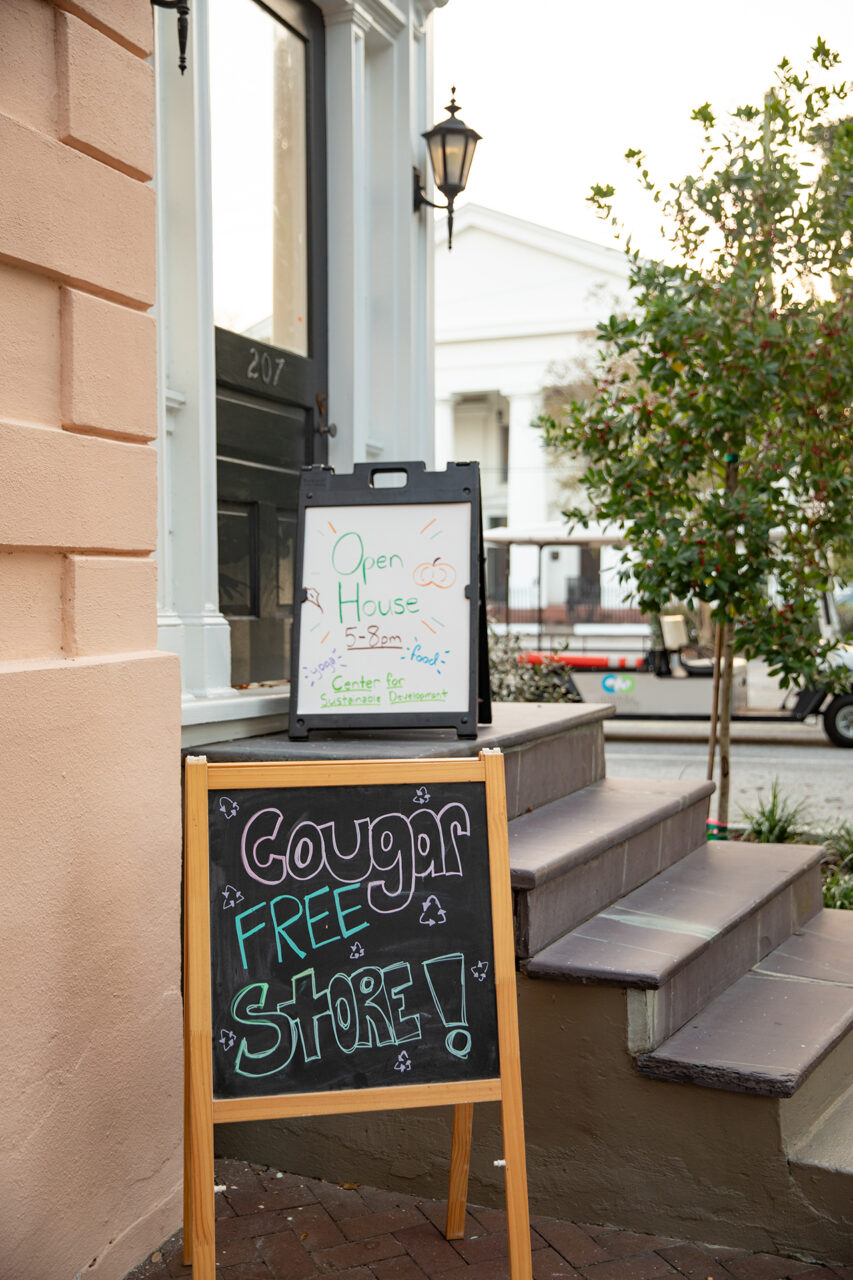 207
Open
House
5-8pm
yoga
food
Center for
Sustainable Development
Cougar
FREE
STORE!